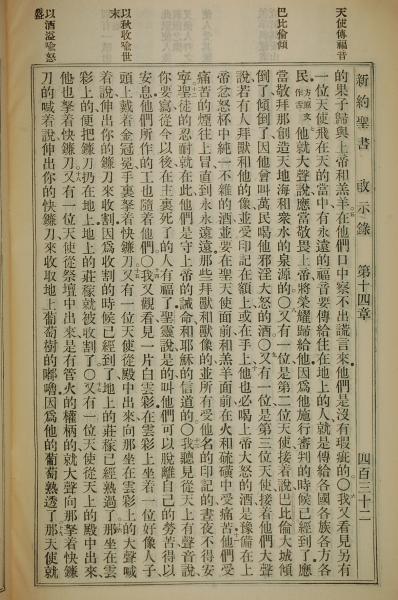 新約聖書 啟示錄 第十四章 四百三十二
天使傳福音
巴比倫傾
以秋收喻世末
以酒溢喻怒盛
的果子歸與上帝和羔羊在他們口中察不出謊言來他們是沒有瑕疵的〇我又看見另有
一位天使飛在天的當中有永遠的福音要傳給住在地上的人就是傳給各國各族各方各
民方原文作舌他就大聲說應當敬畏上帝將榮耀歸給他因爲他施行審判的時候已經到了應
當敬拜那創造天地海和衆水的泉源的〇又有一位是第二位天使接着說巴比倫大城傾
倒了傾倒了因他曾叫萬民喝他邪淫大怒的酒〇又有一位是第三位天使接着他們大聲
說若有人拜獸和他的像並受印記在額上或在手上他也必喝上帝大怒的酒是豫備在上
帝忿怒杯中純一不雜的酒並要在聖天使面前和羔羊面前在火和硫磺中受痛苦他們受
痛苦的煙往上冒直到永永遠遠那些拜獸和獸像的並所有受他名的印記的晝夜不得安
寧聖徒的忍耐就在此他們是守上帝的誡命和耶穌的信道的〇我聽見從天上有聲音說
你要寫從今以後在主裏死了的人有福了聖靈說是的叫他們可以脫離自己的勞苦得以
安息他們所作的工也隨着他們〇我又觀看見一片白雲彩在雲彩上坐着一位好像人子
頭上戴着金冠冕手裏拏着快鐮刀又有一位天使從殿中出來向那坐在雲彩上的大聲喊
着說伸出你的鐮刀來收割因爲收割的時候已經到了地上的莊稼已經熟過了那坐在雲
彩上的便把鐮刀扔在地上地上的莊稼就被收割了〇又有一位天使從天上的殿中出來
他也拏着快鐮刀又有一位天使從祭壇中出來是有管火的權柄的就大聲向那拏着快鐮
刀的喊着說伸出你的快鐮刀來收取地上葡萄樹的嘟嚕因爲他的葡萄熟透了那天使就